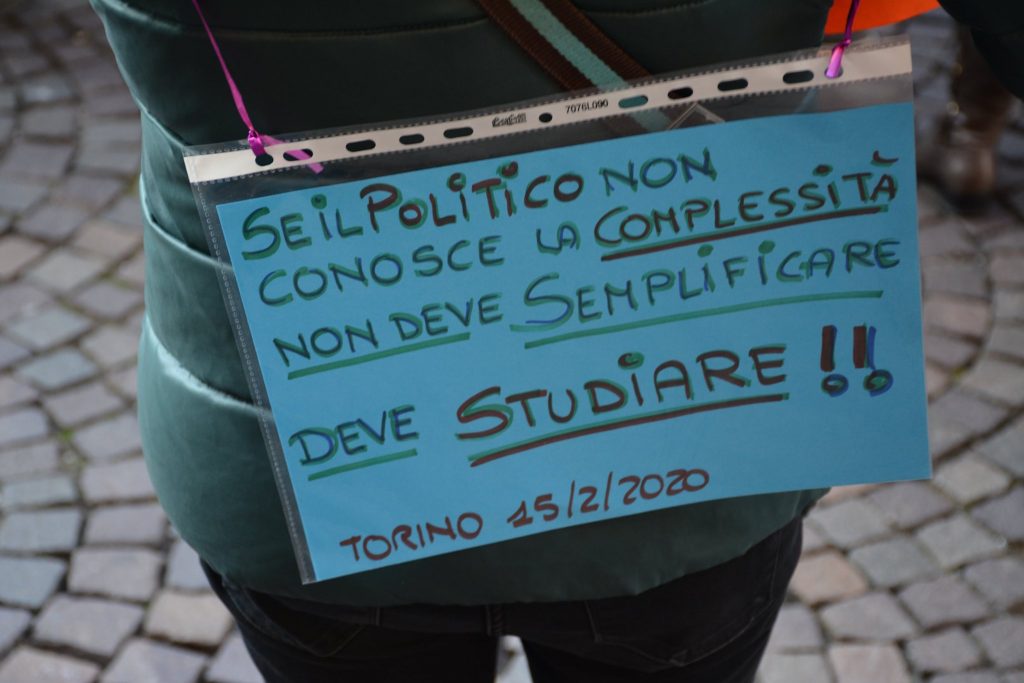 7076L090
SE IL POLITICO NON
CONOSCE LA COMPLESSITÀ
NON DEVE SEMPLIFICARE
DEVE STUDIARE !!
TORINO 15/2/2020